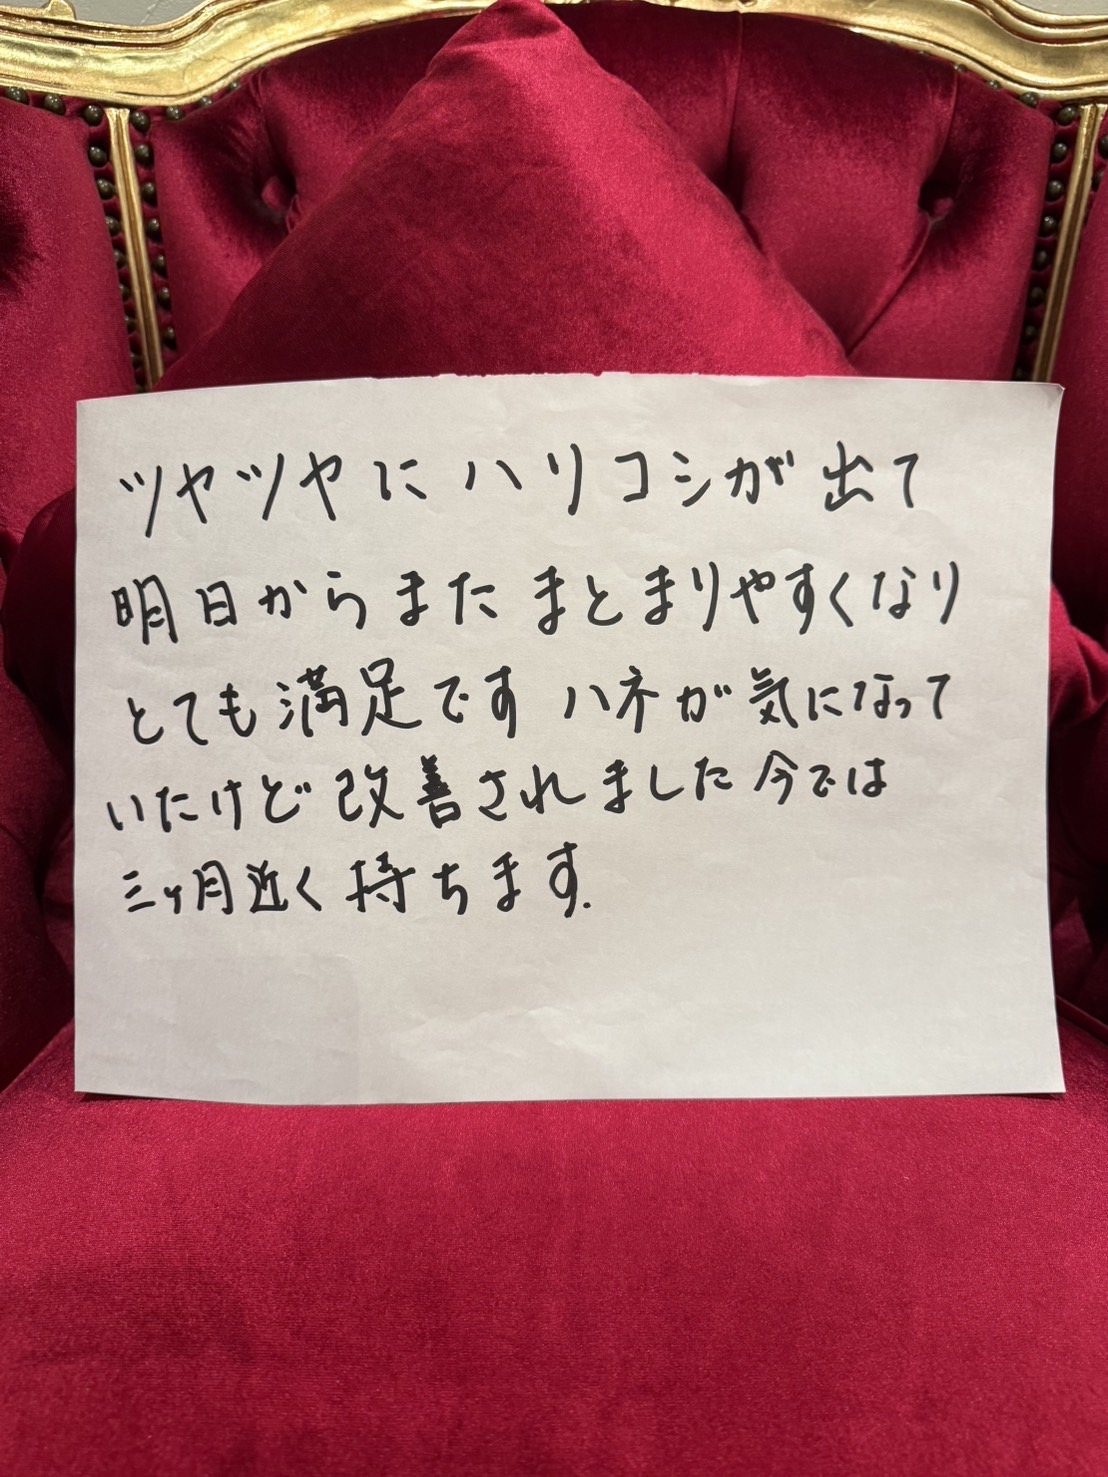 ツヤツヤに ハリコシが出て
明日からまたまとまりやすくなり
とても満足です ハネが気になって
いたけど改善されました今では
三ヶ月近く持ちます.